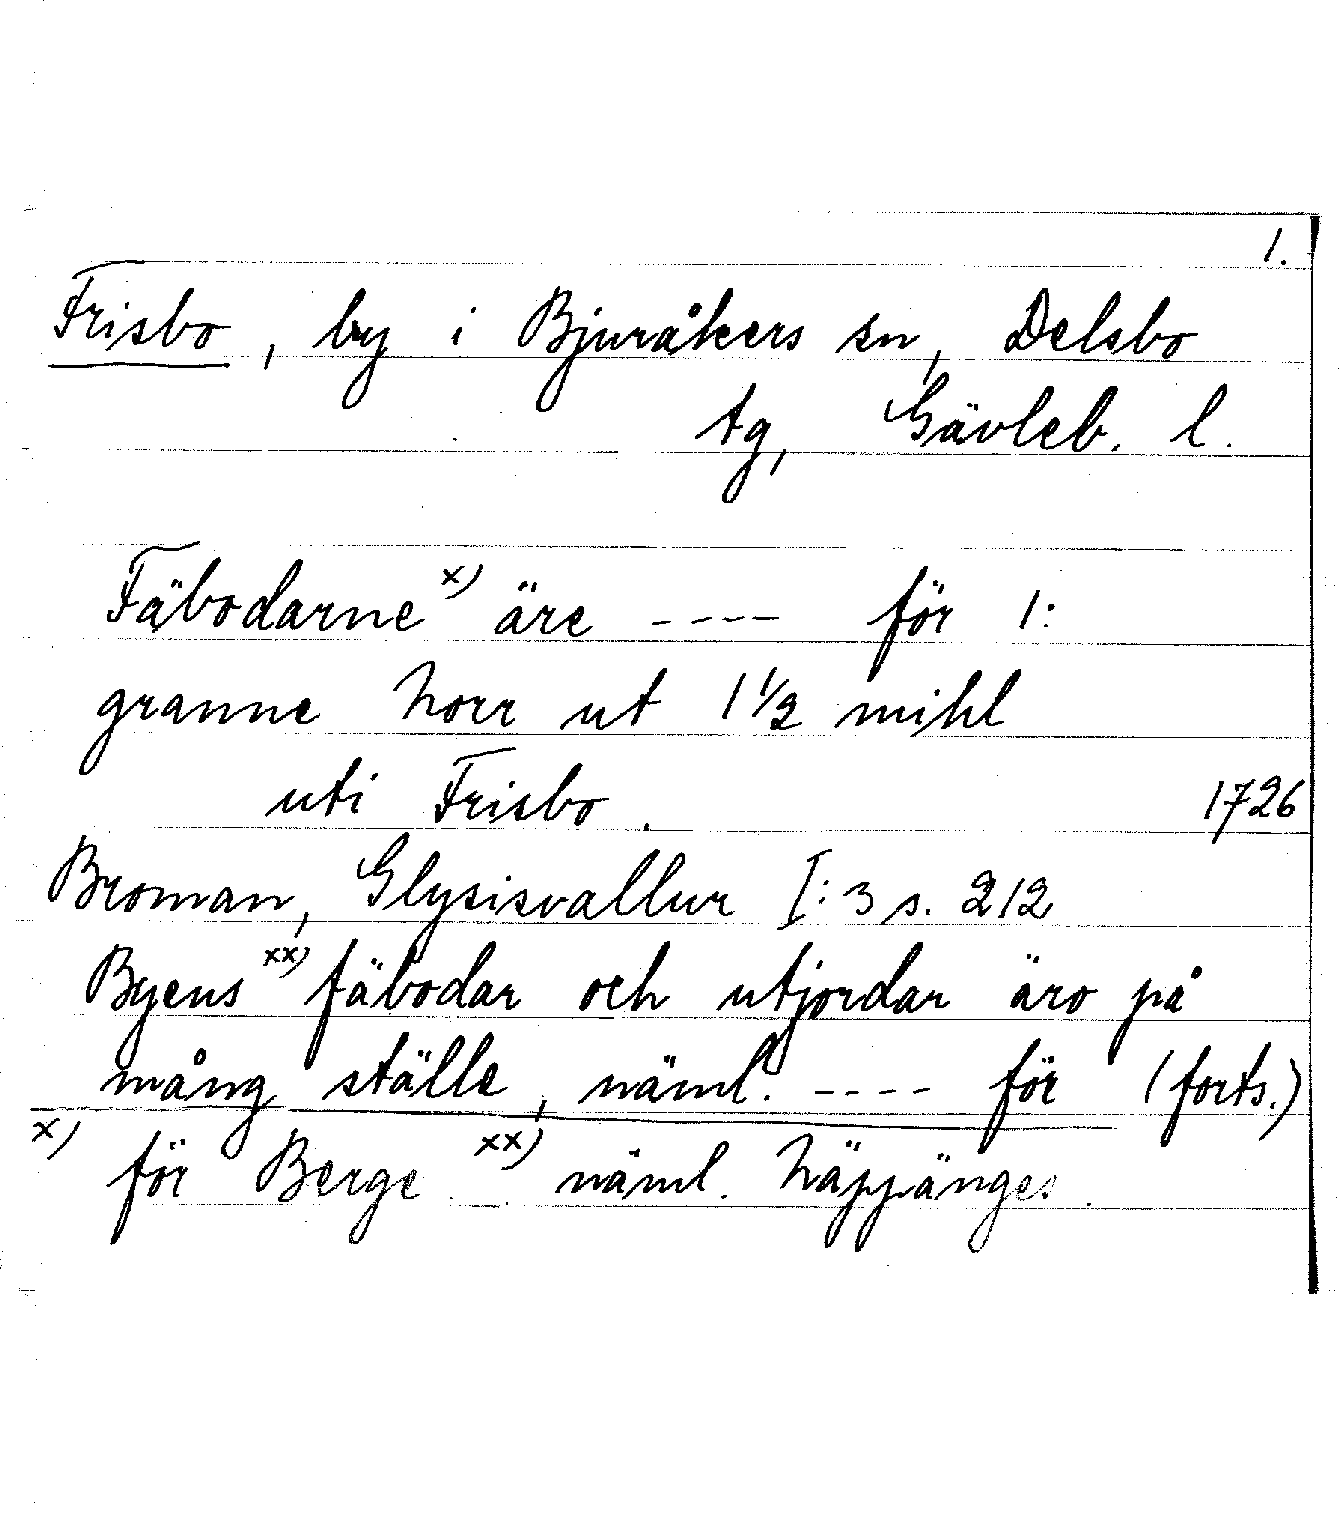 1.
Frisbo, by i Bjuråkers sn, Delsbo
tg, Gävleb. l.
Fäbodarne x) äre ---- för 1:
granne Norr ut 1 1/2 mihl
uti Frisbo. 1726
Broman, Glysisvallur I:3 s. 212
Byens xx) fäbodar och utjordar äro på
mång ställe, näml. ---- för (forts.)
x) för Berge xx) näml. Näppänges.